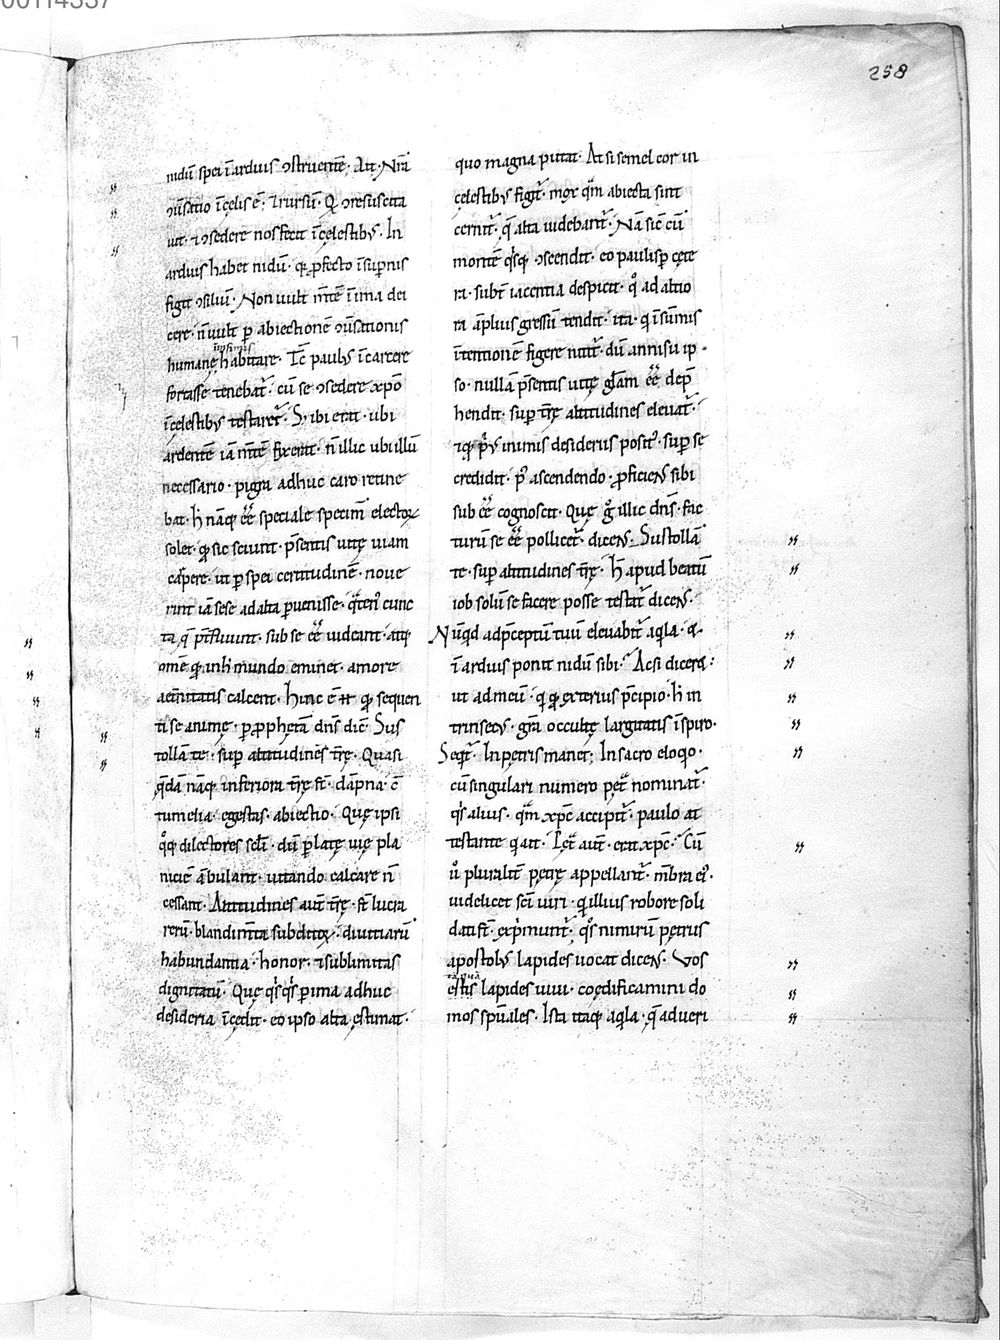 00114337
258
nidū spei ī arduis ɔstruentē; Ait. Nr̄a
ɔūsatio ī cęlis ē; ⁊ rursū. Q ɔresuscita
uit. ⁊ ɔsedere nos fecit ī cęlestibꝰ. In
arduis habet nidū. qꝛ ꝓfecto ī suꝑnis
figit ɔsiliū. Non uult mt̄ē ī ima dei
cere. n̄ uult ꝑ abiectionē ɔūsationis
infimis
humanę habitare. Tc̄ paulꝰ ī carcere
fortasse tenebat᷑. cū se ɔsedere xp̄o
ī cęlestibꝰ testaret᷑. S; ibi erat. ubi
ardentē iā mt̄ē fixerat. n̄ illic ubi illū
necessario. pigra adhuc caro retine
bat. h̄ nāq; ee̅ speciale specim̄ electoꝝ
solet. qꝛ sic sciunt. p̄sentis uitę uiam
carpere. ut ꝑ spei certitudinē. noue
rint iā sese ad alta ꝑuenisse. qͣtenꝰ cunc
ta q̄ p̄t̄fluunt. sub se ee̅ uideant. atq;
om̄e qꝛ in h̄ mundo eminet. amore
aet̄nitatis calcent. hinc ē ⁊ qꝛ sequen
ti se animę. ꝑ ꝓphetā dn̄s dic̄. Sus
tollā te. suꝑ altitudines t̄rę. Quasi
q̄dā nāq; inferiora t̄rę st̄. dāpna. ɔ̄
tumelia. egestas. abiectio. Quę ipsi
q̊q; dilectores sc̄li. dū ꝑ latę uię pla
niciē ābulant. uitando calcare n̄
cessant. Altitudines aut̄ t̄rę. st̄ lucra
rerū. blandim̄ta subditoꝝ. diuitiarū
habundantia. honor. ⁊ sublimitas
dignitatū. Quę qͥsqͥs ꝑ ima adhuc
desideria īcedit. eo ipso alta ęstimat.
quo magna putat. At si semel cor in
cęlestibꝰ figit᷑. mox qͣm abiecta sint
cernit᷑. q̄ alta uidebant᷑. Nā sic cū
montē qͥsq; ɔscendit. eo paulisꝑ cęte
ra. subt̄ iacentia despicit. qͦ ad altio
ra āplius gressū tendit. ita. q ī sūmis
ītentionē figere nitit᷑. dū annisu ip-
so. nullā p̄sentis uitę gl̄am ee̅ dep̄
hendit. suꝑ t̄rę altitudines eleuat᷑.
⁊ q; pͥꝰ inimis desideriis positꝰ. suꝑ se
credidit. pꝰ ascendendo. ꝓficiens sibi
sub ee̅ cognoscit. Quę g̊ illic dn̄s. fac
turū se ee̅ pollicet᷑. dicens. Sustollā
te. suꝑ altitudines t̄rę. h̄ apud beatū
iob solū se facere posse testat᷑ dicens.
Nūqͥd ad p̄ceptū tuū eleuabit᷑ aqͥla. &
ī arduis ponit nidū sibi. Ac si dicere&:
ut ad meū. q qꝛ exterius p̄cipio. h̄ in
trinsecꝰ. gr̄a occultę largitatis īspiro.
Seqͥt᷑. In petris manet; In sacro eloqͥo.
cū singulari numero petͣ nominat᷑.
qͥs alius. qͣm xp̄c accipit᷑. paulo at
testante q ait. Petͣ aut̄. erat xp̄c. Cū
ů pluralit̄ petrę appellant᷑. m̄bra eiꝰ.
uidelicet sc̄i uiri. q illius robore soli
dati st̄. expͥmunt᷑. qͦs nimirū petrus
apostolꝰ lapides uocat dicens. Vos
tāquā
estis lapides uiui. coędificamini do
mos spūales. Ista itaq; aqͥla. q̄ ad ueri